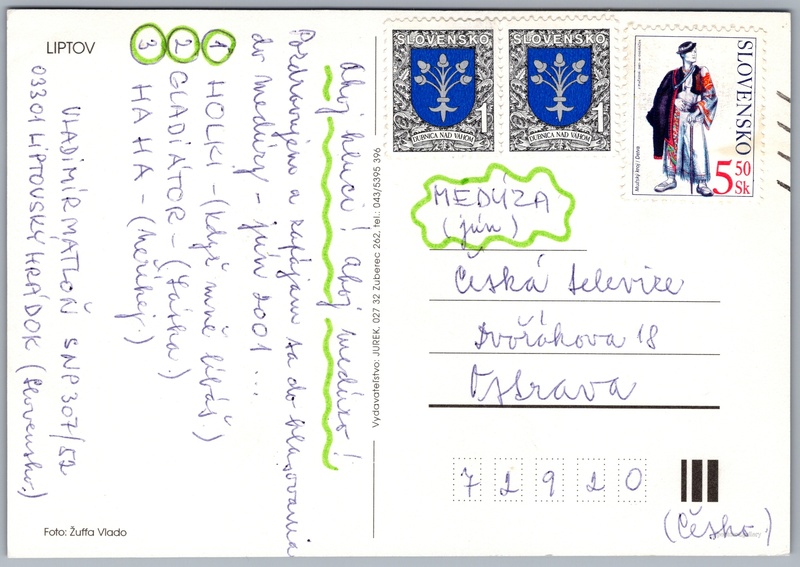 LIPTOV
Ahoj kluci! Ahoj medúzo!
Pozdravujem a zapájam sa do hlasovania
do Medúzy - jún 2001...
1 HOLKI - (Když mně líbáš.)
2 GLADIÁTOR - (Láska.)
3 HAHA - (Neříkej.)
VLADIMÍR MATLOŇ SNP 307/52
03301 LIPTOVSKÝ HRÁDOK (Slovensko.)
Foto: Žuffa Vlado
Vydavateľstvo: JUREK, 027 32 Zuberec 262, tel.: 043/5395 396
SLOVENSKO
1
DUBNICA NAD VÁHOM
SLOVENSKO
1
DUBNICA NAD VÁHOM
SLOVENSKO
5 50
Sk
MEDÚZA
(jún)
Česká televize
Dvořákova 18
Ostrava
72920
(Česko.)